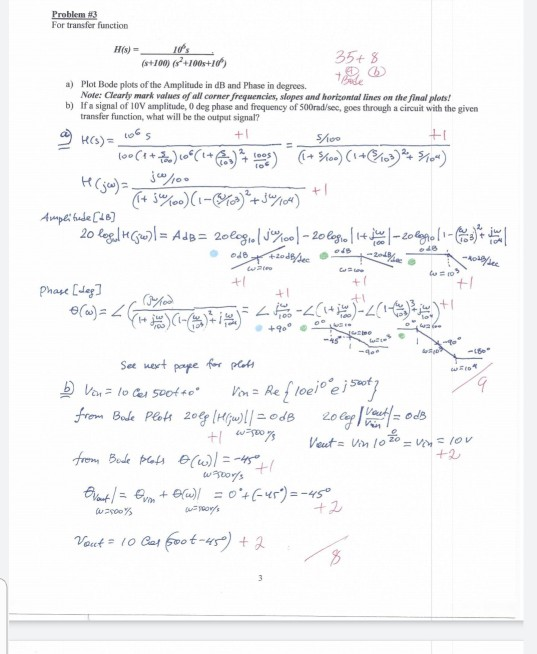 Problem #3
For transfer function
H(s) = 10⁶s / (s+100) (s²+100s+10⁶)
35 + 8
+ (a) (b)
Bode
a) Plot Bode plots of the Amplitude in dB and Phase in degrees.
Note: Clearly mark values of all corner frequencies, slopes and horizontal lines on the final plots!
b) If a signal of 10V amplitude, 0 deg phase and frequency of 500rad/sec, goes through a circuit with the given
transfer function, what will be the output signal?
a) H(s) = 10⁶ s / 100 (1 + s/100) 10⁶ (1 + (s/10³)² + 100s/10⁶) +1 = s/100 / (1 + s/100) (1 + (s/10³)² + s/10⁴) +1
H(jω) = jω/100 / (1 + jω/100) (1 - (ω/10³)² + jω/10⁴) +1
Amplitude [dB]
20 log₁₀ |H(jω)| = AdB = 20 log₁₀ |jω/100| - 20 log₁₀ |1 + jω/100| - 20 log₁₀ |1 - (ω/10³)² + jω/10⁴|
0dB +20dB/dec 0dB -20dB/dec 0dB -40dB/dec
ω=100 ω=100 ω=10³
+1 +1 +1
Phase [deg]
θ(ω) = ∠ (jω/100) / (1 + jω/100) (1 - (ω/10³)² + jω/10⁴) = ∠ jω/100 - ∠ (1 + jω/100) - ∠ (1 - (ω/10³)² + jω/10⁴) +1
+1 +1
+90° 0° ω=10 0° ω=100
-45° ω=100 ω=10³ -90°
-90° ω=10³ -180°
ω=10⁴
See next page for plots
9
b) Vin = 10 Cos 500t + 0° Vin = Re { 10e^j0° e^j500t }
from Bode Plots 20 lg |H(jω)| = 0 dB 20 log |Vout/Vin| = 0dB
+1 ω=500 r/s Vout = Vin 10^(0/20) = Vin = 10V
+2
from Bode plots θ(ω)| = -45° +1
ω=500 r/s
θVout| = θVin + θ(ω)| = 0° + (-45°) = -45°
ω=500 r/s ω=500 r/s +2
Vout = 10 Cos (500t - 45°) + 2
8
3